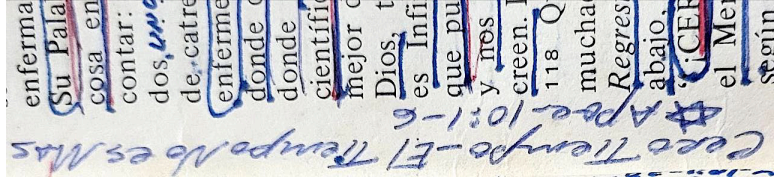 enferma
Su Pala
cosa en
contar:
dos,
de catre
enferme
donde
donde
científi
mejor
Dios, t
es Infi
que pu
y nos
creen.
118 Q
mucha
Regres
abajo
“¡CER
el Mer
según
Cero Tiempo - El Tiempo No es Mas
☆ Apoc-10:1-6